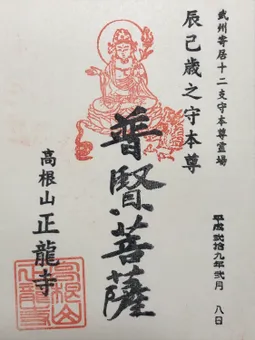 武州寄居十二支守本尊霊場
辰巳歳之守本尊
普賢菩薩
高根山 正龍寺
平成弐拾九年弐月 八日
高根山正龍寺